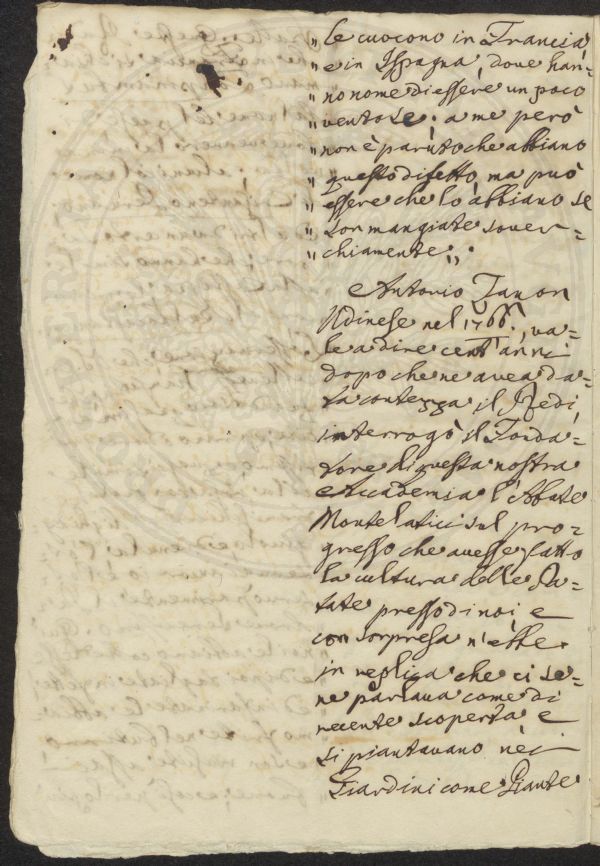 „ le cuocono in Francia,
„ e in Ispagna, dove han-
„ no nome di essere un poco
„ ventose; a me però
„ non è paruto che abbiano
„ questo difetto, ma può
„ essere che lo abbiano se
„ son mangiate sover-
„ chiamente„.
Antonio Zanon
Udinese nel 1766., va-
le a dire cent'anni
dopo che ne avea da-
ta contezza il Redi,
interrogò il Fonda-
tore di questa nostra
Accademia l'Abate
Montelatici sul pro-
gresso che avesse fatto
la cultura delle Pa-
tate presso di noi, e
con sorpresa n'ebbe
in replica che ci se
ne parlava come di
recente scoperta e
si piantavano nei
Giardini come Piante